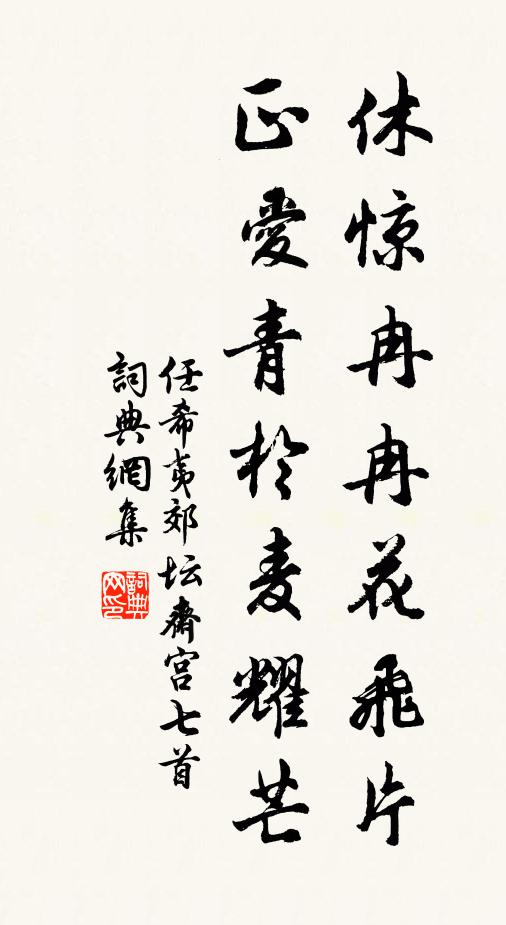 休惊冉冉花飛片
正愛青於麦耀芒
任希夷郊坛齋宫七首
詞典網集
詞典网印